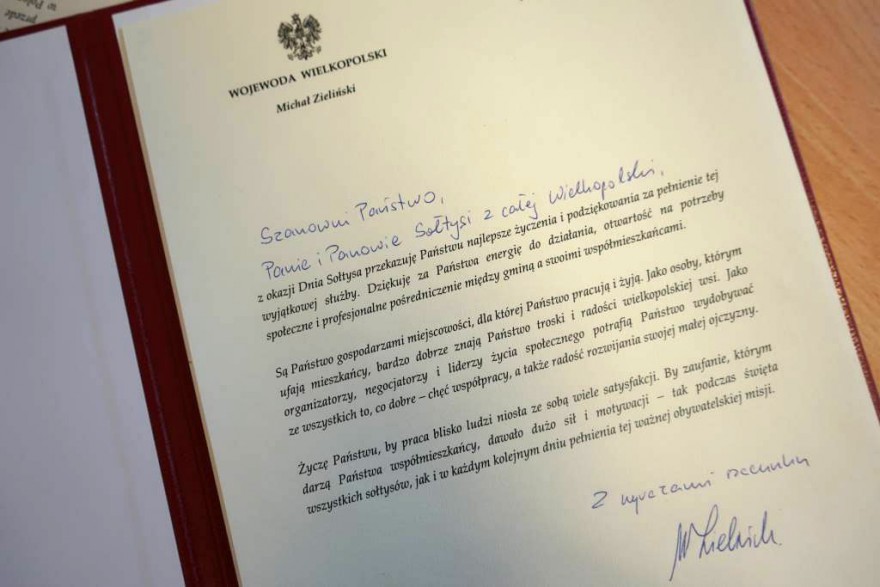 WOJEWODA WIELKOPOLSKI
Michał Zieliński
Szanowni Państwo,
Panie i Panowie Sołtysi z całej Wielkopolski,
z okazji Dnia Sołtysa przekazuję Państwu najlepsze życzenia i podziękowania za pełnienie tej
wyjątkowej służby. Dziękuję za Państwa energię do działania, otwartość na potrzeby
społeczne i profesjonalne pośredniczenie między gminą a swoimi współmieszkańcami.
Są Państwo gospodarzami miejscowości, dla której Państwo pracują i żyją. Jako osoby, którym
ufają mieszkańcy, bardzo dobrze znają Państwo troski i radości wielkopolskiej wsi. Jako
organizatorzy, negocjatorzy i liderzy życia społecznego potrafią Państwo wydobywać
ze wszystkich to, co dobre – chęć współpracy, a także radość rozwijania swojej małej ojczyzny.
Życzę Państwu, by praca blisko ludzi niosła ze sobą wiele satysfakcji. By zaufanie, którym
darzą Państwa współmieszkańcy, dawało dużo sił i motywacji – tak podczas święta
wszystkich sołtysów, jak i w każdym kolejnym dniu pełnienia tej ważnej obywatelskiej misji.
Z wyrazami szacunku